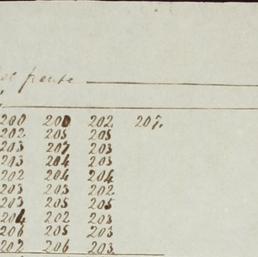 200 200 202 207.
202 205 205
203 207 203
203 204 203
202 204 204
203 203 202
203 205 205
204 202 203
206 205 203
202 206 203